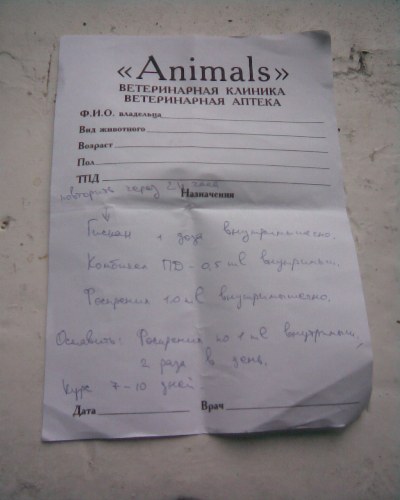 «Animals»
ВЕТЕРИНАРНАЯ КЛИНИКА
ВЕТЕРИНАРНАЯ АПТЕКА
Ф.И.О. владельца
Вид животного
Возраст
Пол
ТПД
повторить через 24 часа
Назначения
Гискан 1 доза внутримышечно.
Комбикел ПД - 0,5 ml внутримыш.
Фоспренил 1.0 ml внутримышечно.
Оставить: Фоспренил по 1 ml внутримыш.
2 раза в день.
Курс 7-10 дней
Дата Врач